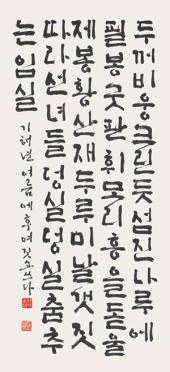 두꺼비웅크린듯섬진나루에
필봉굿판휘모리흥을돋울
제봉황산재두루미날갯짓
따라선녀들덩실덩실춤추
는임실
기해년여름에후여짓고쓰다